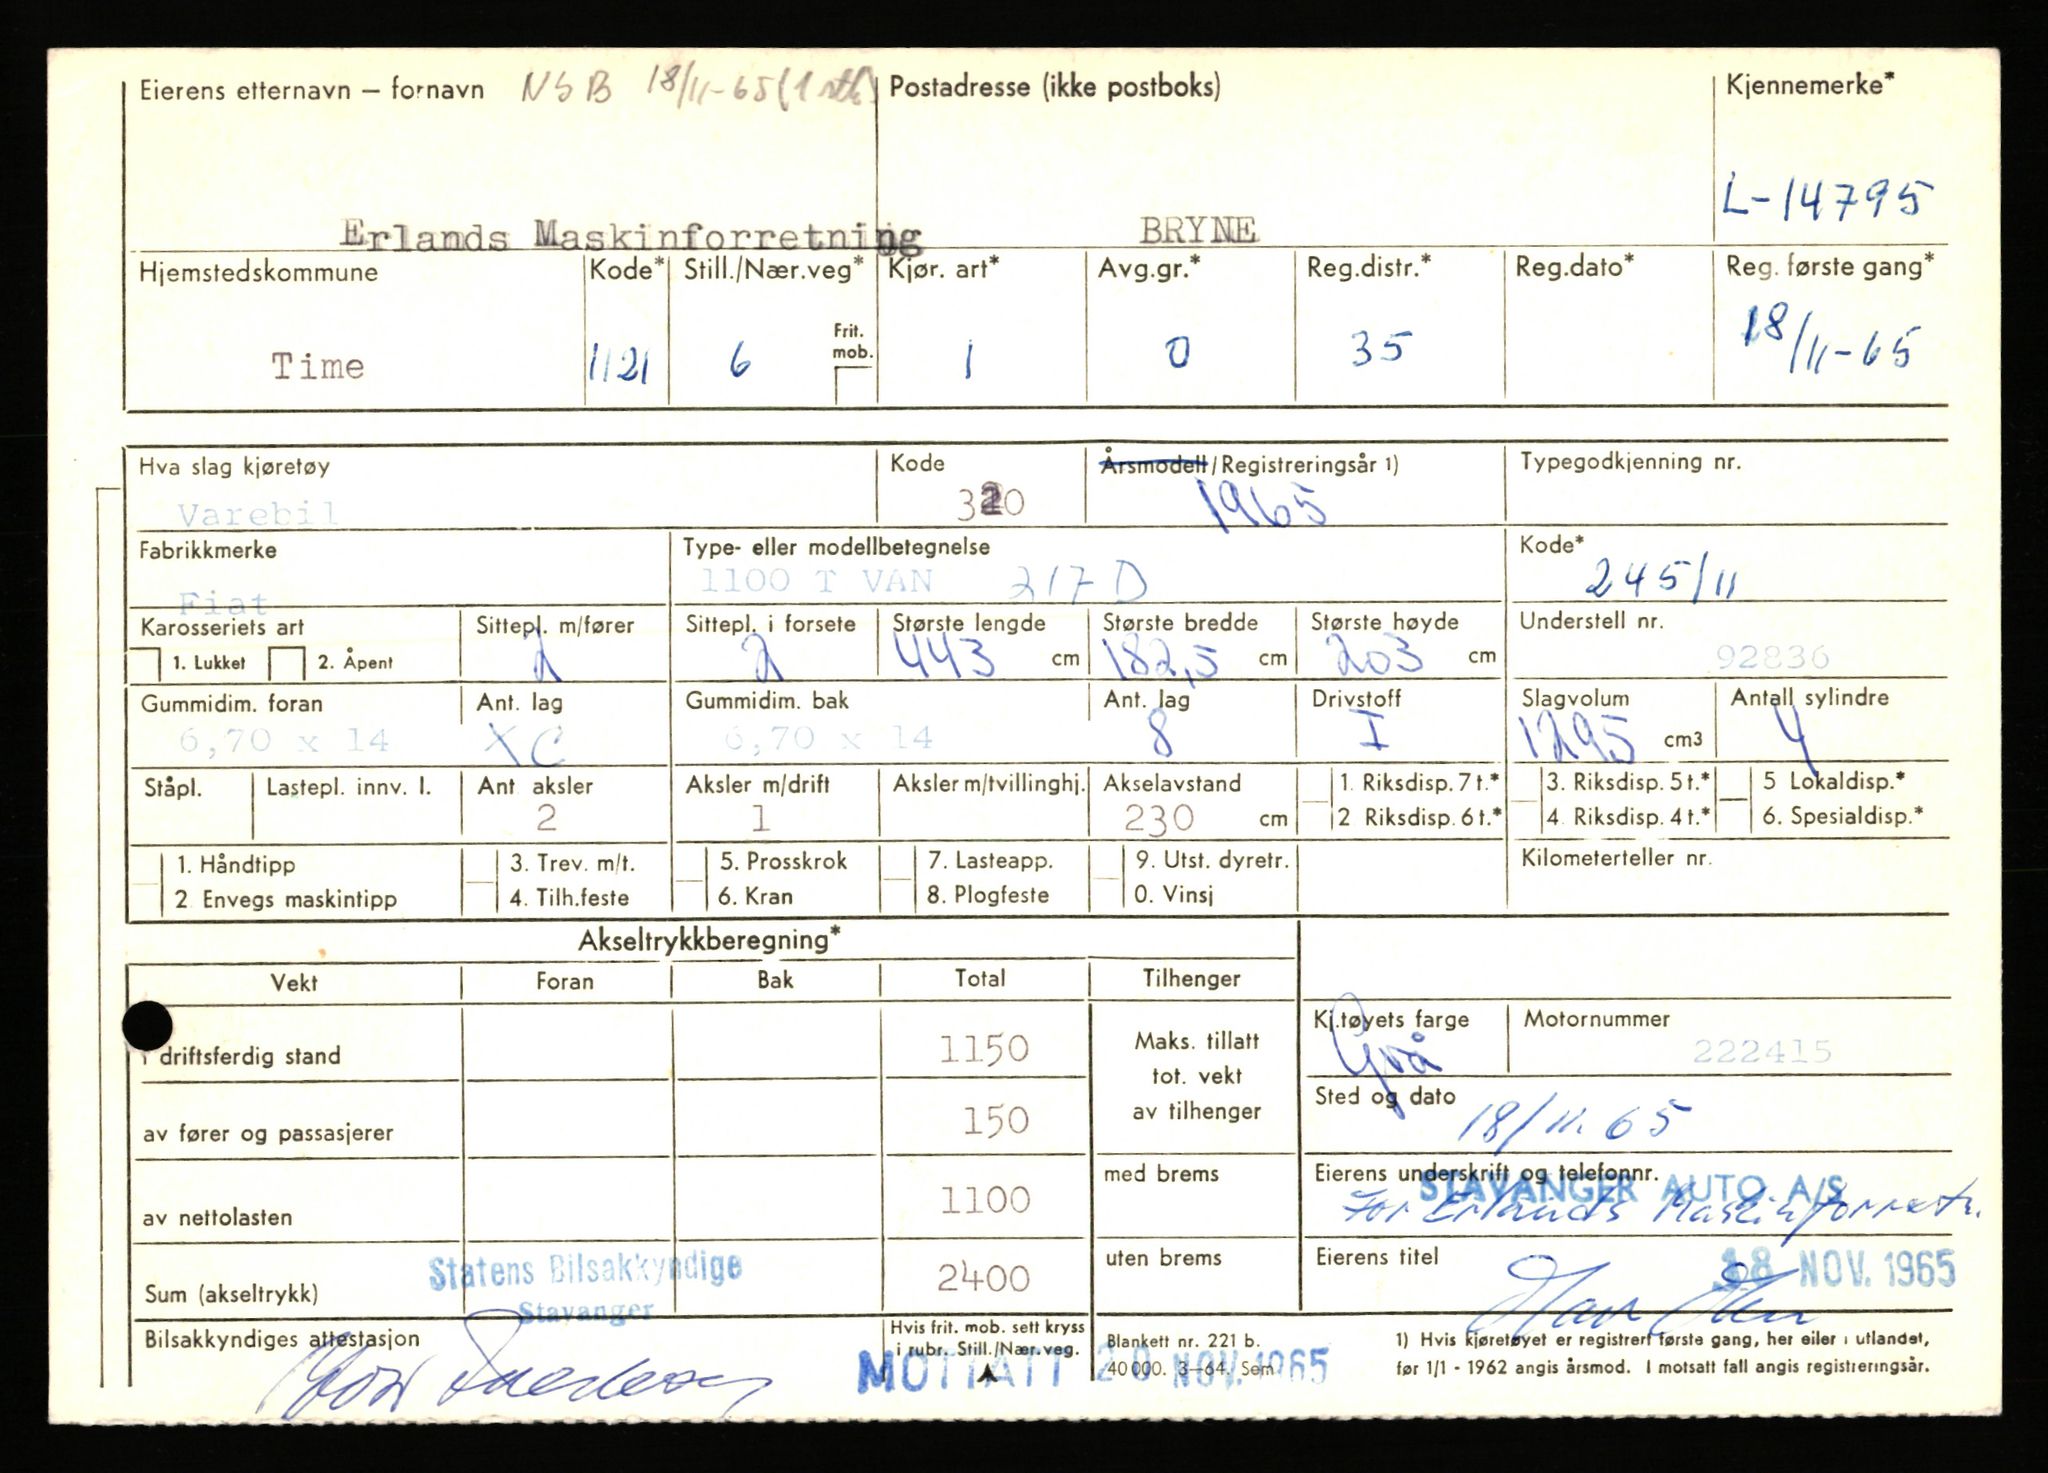 Eierens etternavn – fornavn NSB 18/11-65 (1 stk) Postadresse (ikke postboks) Kjennemerke*
L-14795
Erlands Maskinforretning BRYNE
Hjemstedskommune Kode* Still./Nær.veg* Kjør. art* Avg.gr.* Reg.distr.* Reg.dato* Reg. første gang*
Frit. mob.
Time 1121 6 1 0 35 18/11-65
Hva slag kjøretøy Kode Årsmodell/Registreringsår 1) Typegodkjenning nr.
Varebil 320 1965
Fabrikkmerke Type- eller modellbetegnelse Kode*
Fiat 1100 T VAN 217 D 245/11
Karosseriets art Sittepl. m/fører Sittepl. i forsete Største lengde Største bredde Største høyde Understell nr.
1. Lukket 2. Åpent 2 2 443 cm 182,5 cm 203 cm 92836
Gummidim. foran Ant. lag Gummidim. bak Ant. lag Drivstoff Slagvolum Antall sylindre
6,70 x 14 XC 6,70 x 14 8 I 1295 cm3 4
Ståpl. Lastepl. innv. l. Ant aksler Aksler m/drift Aksler m/tvillinghj. Akselavstand 1. Riksdisp. 7 t.* 3. Riksdisp. 5 t.* 5 Lokaldisp.*
2 1 230 cm 2 Riksdisp. 6 t.* 4. Riksdisp. 4 t.* 6. Spesialdisp.*
1. Håndtipp 3. Trev. m/t. 5. Prosskrok 7. Lasteapp. 9. Utst. dyretr. Kilometerteller nr.
2 Envegs maskintipp 4. Tilh.feste 6. Kran 8. Plogfeste 0. Vinsj
Akseltrykkberegning*
Vekt Foran Bak Total Tilhenger
i driftsferdig stand 1150 Maks. tillatt tot. vekt av tilhenger
Kj.tøyets farge Motornummer
Grå 222415
av fører og passasjerer 150
Sted og dato
18/11. 65
av nettolasten 1100 med brems
Eierens underskrift og telefonnr.
STAVANGER AUTO A/S
For Erlands Maskinforretn.
Sum (akseltrykk) 2400 uten brems
Eierens titel 18 NOV. 1965
Statens Bilsakkyndige
Stavanger
Bilsakkyndiges attestasjon
Hvis frit. mob. sett kryss
i rubr. Still./Nær.veg.
Blankett nr. 221 b.
40 000. 3–64. Sem
MOTTATT 20 NOV. 1965
1) Hvis kjøretøyet er registrert første gang, her eller i utlandet,
før 1/1 - 1962 angis årsmod. I motsatt fall angis registreringsår.